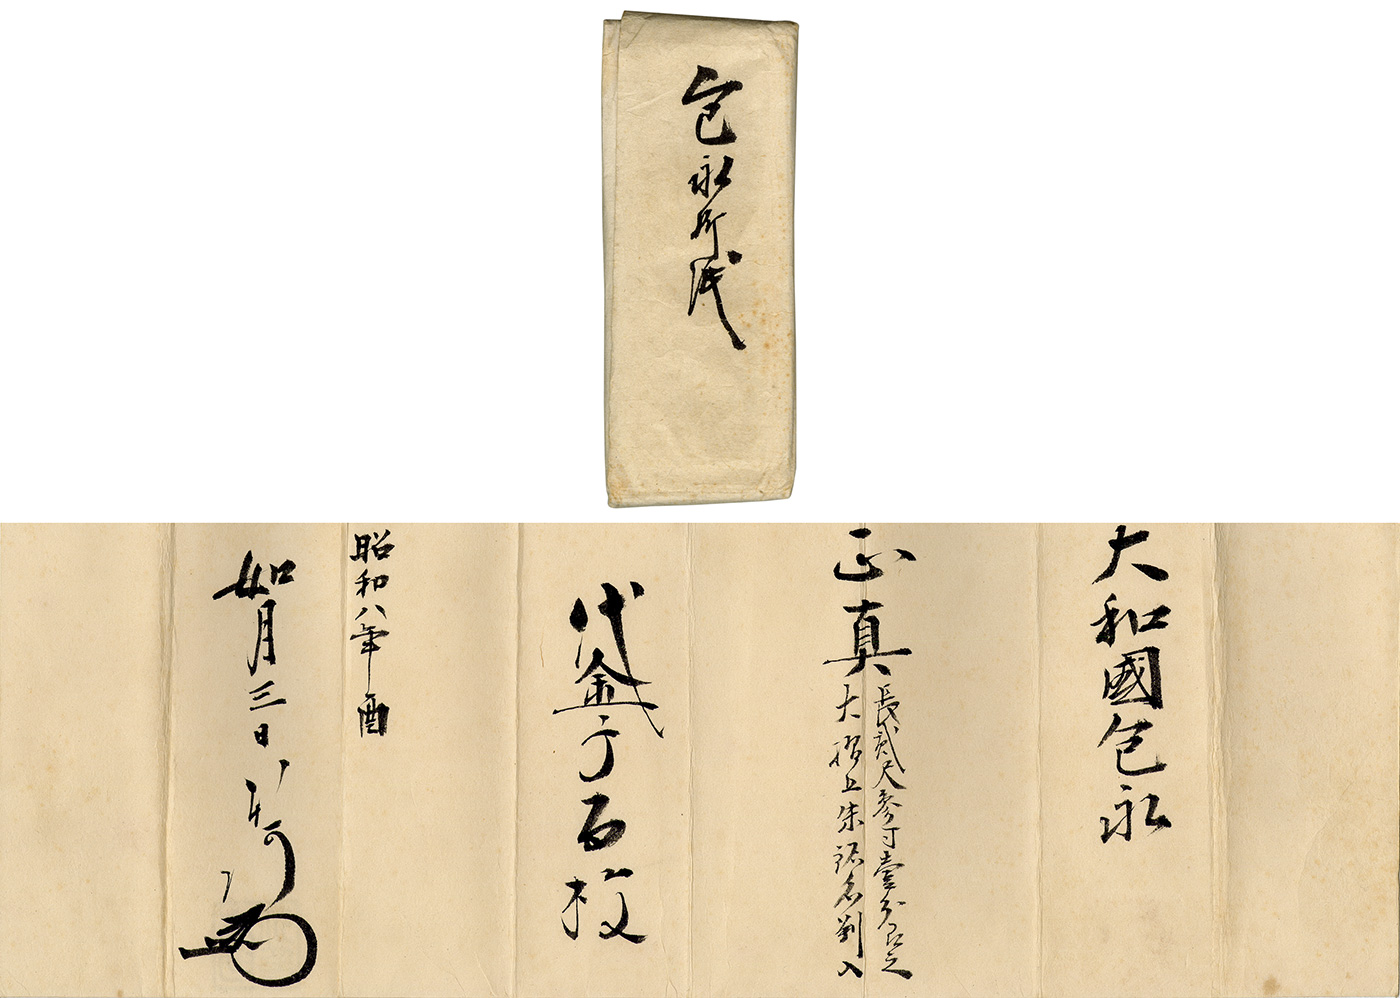 包永折紙
大和國包永
正真
長貳尺参寸壹分有之
大磨上朱銘名判入
代金子百枚
昭和八年酉
如月三日